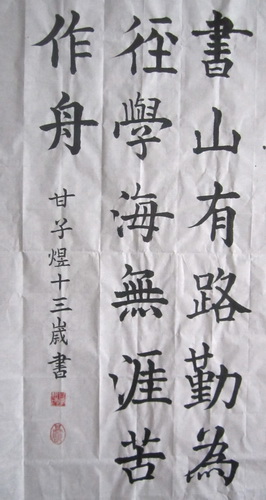 書山有路勤為
径學海無涯苦
作舟
甘子煜十三歲書